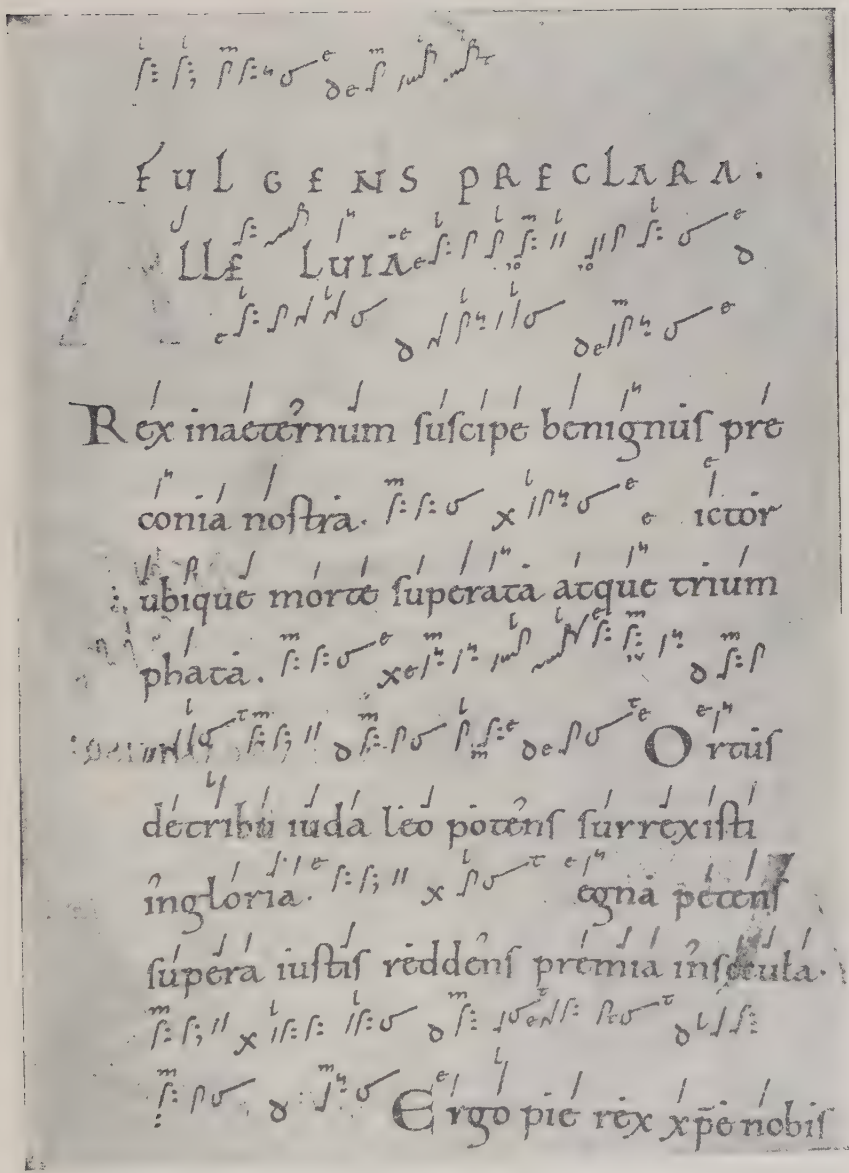 FULGENS PRECLARA.
LLE LUIA
Rex inaeternum suscipe benignus pre
conia nostra. ictor
ubique morte superata atque trium
phata.
Ortus
detribu iuda leo potens surrexisti
ingloria. egna petens
supera iustis reddens premia insecula.
Ergo pie rex xp̄e nobis